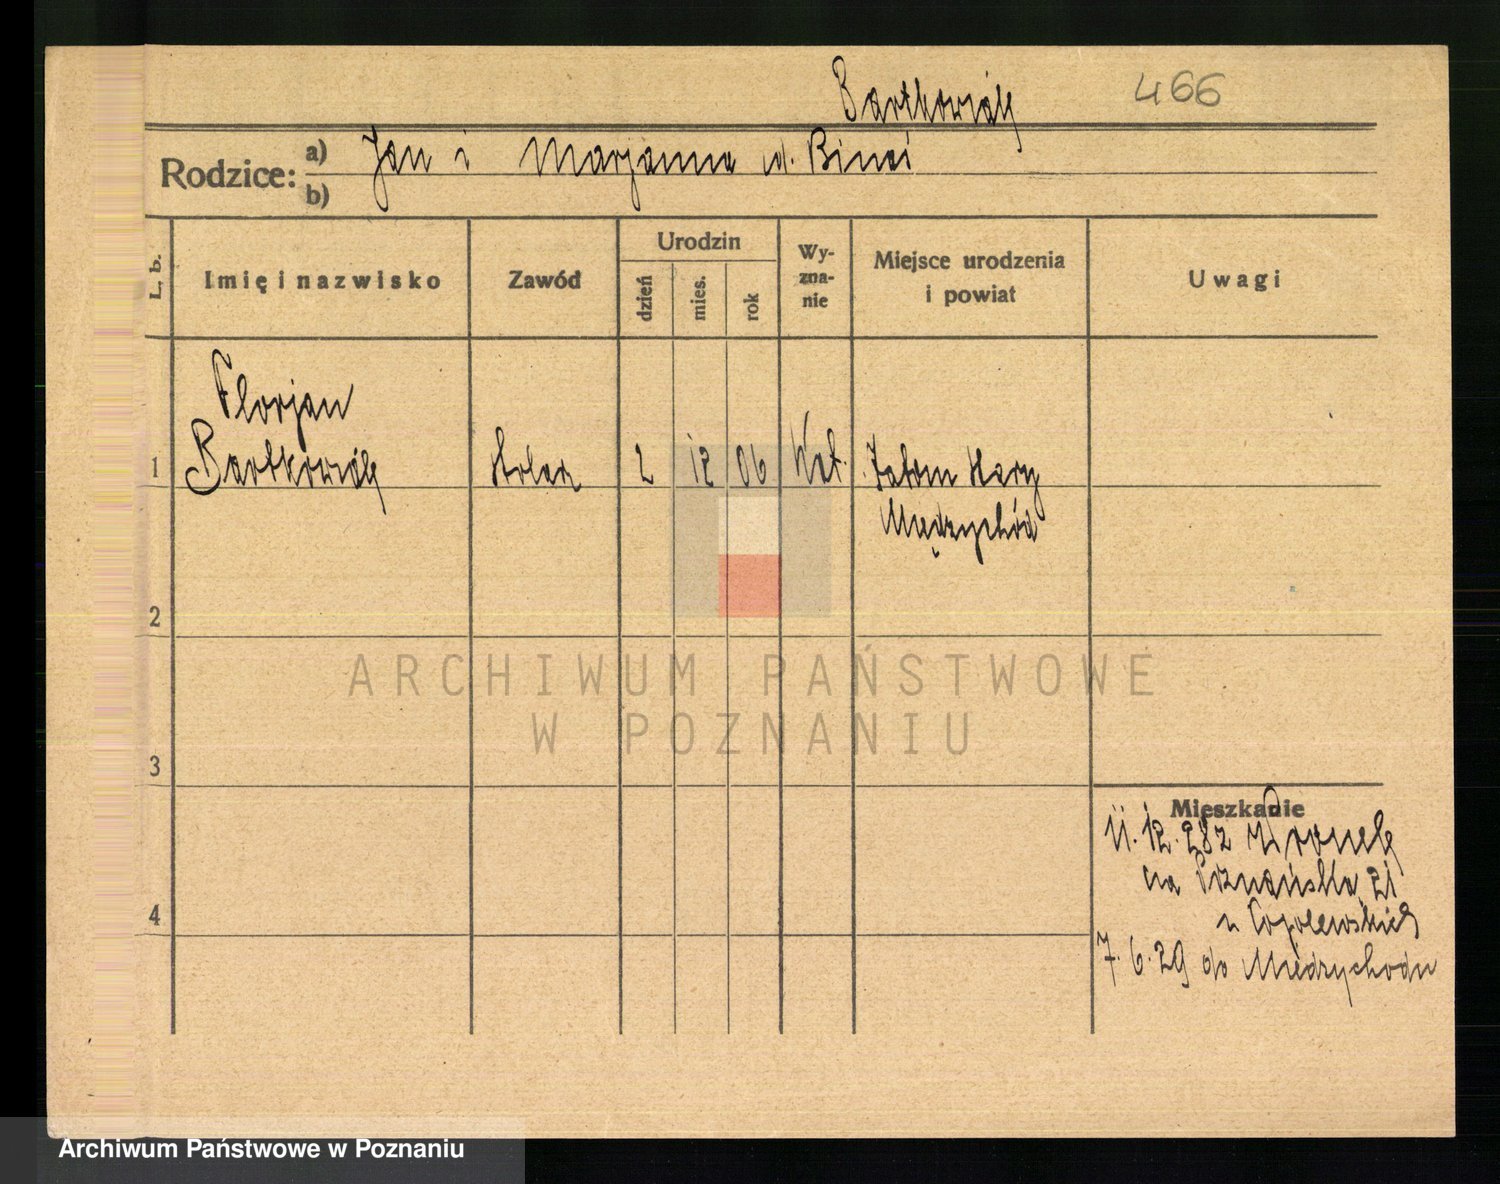 Bartkowiak 466
Rodzice: a) Jan i Marjanna d. Binaś
b)
L. b. Imię i nazwisko Zawód Urodzin dzień mies. rok Wy-zna-nie Miejsce urodzenia i powiat Uwagi
Florjan
1 Bartkowiak stolarz 2 12 06 Kat. Zatom Stary
Międzychód
2
3
Mieszkanie
12. Wronek
4 na Poznańska 21
u
7. 6. 29 do Międzychodu
ARCHIWUM PAŃSTWOWE
W POZNANIU
Archiwum Państwowe w Poznaniu